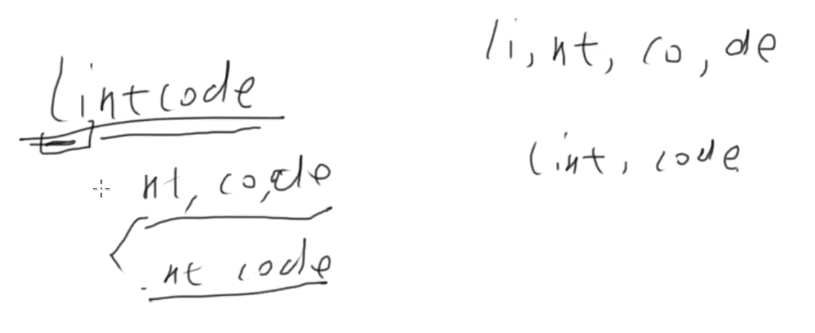 lintcode
nt, co, de
nt code
li, nt, co, de
lint, code